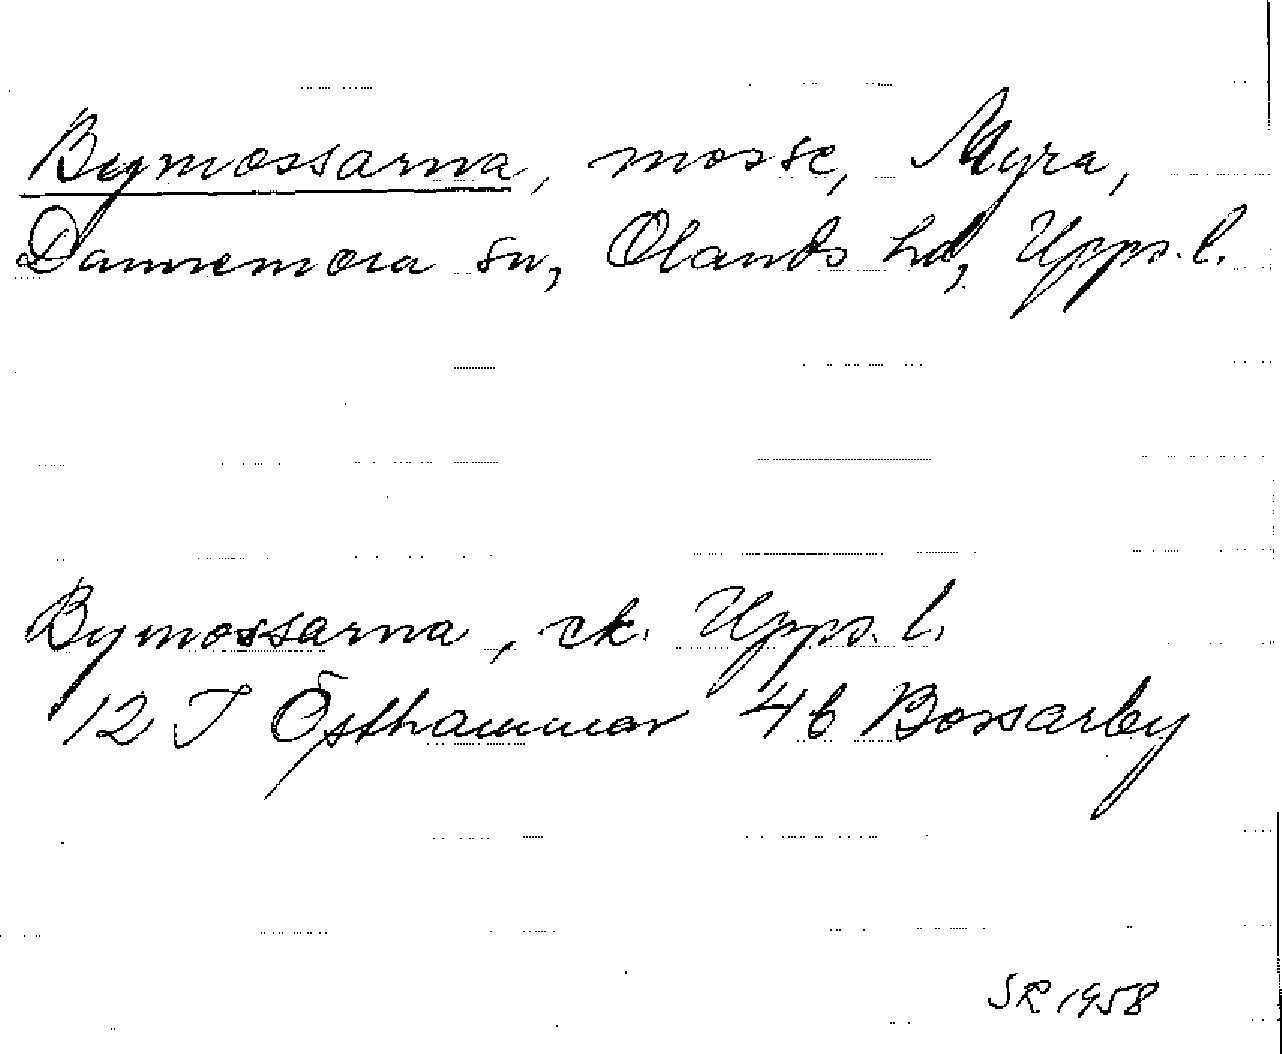 Bymossarna, mosse, Myra,
Dannemora sn, Olands hd, Upps. l.
Bymossarna, ek. Upps. l.
12 I Östhammar 4b Bossarby
SR 1958